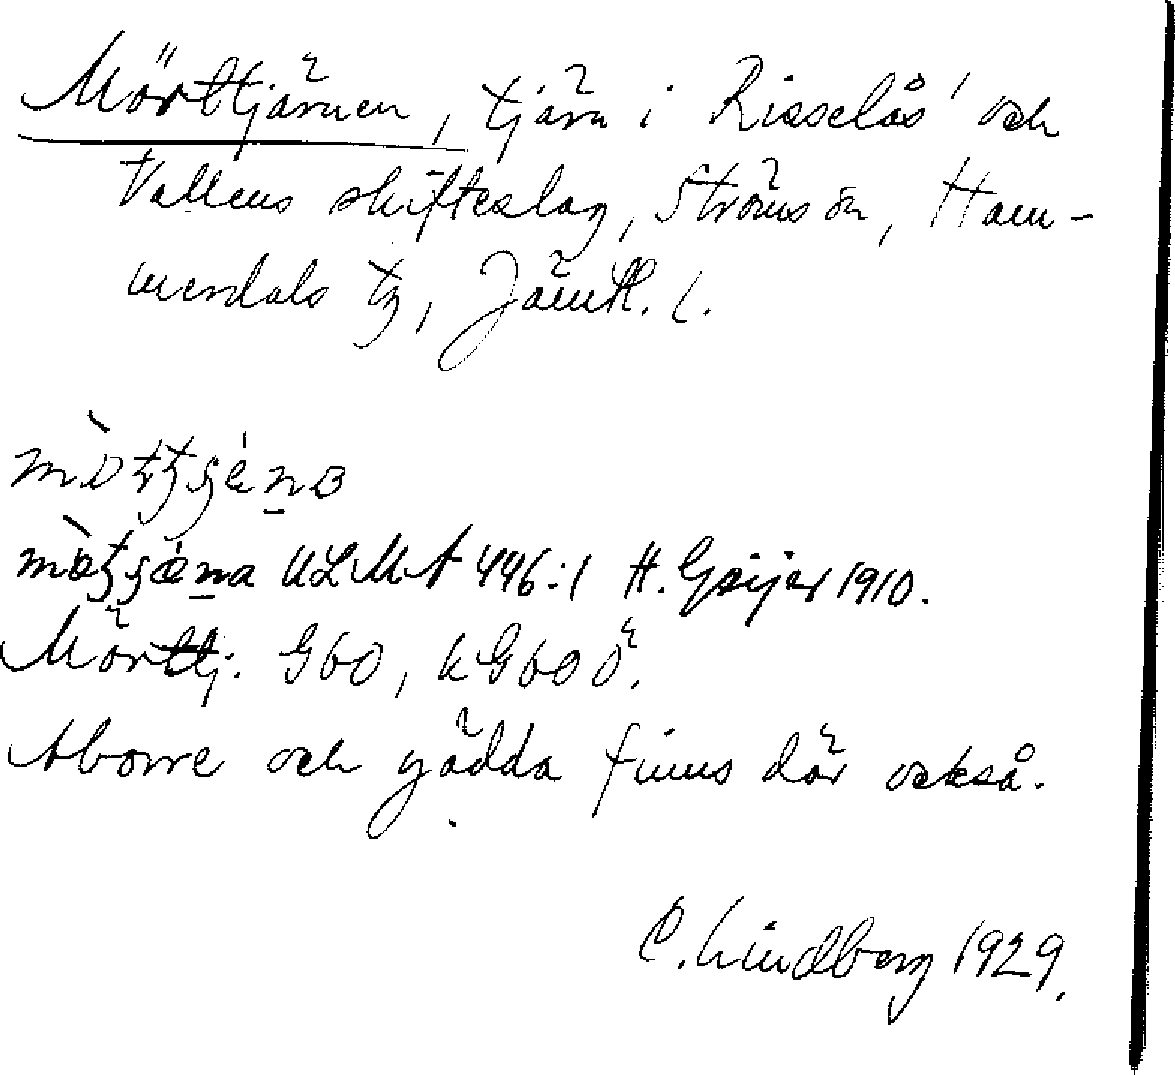 Mörttjärnen, tjärn i Risselås' och
Vallens skifteslag, Ströms sn, Ham-
merdals tg, Jämtl. l.
ULMA 446:1 H. Geijer 1910.
Mörttj. G60, kG60 Ö.
Aborre och gädda finns där också.
C. Lindberg 1929.